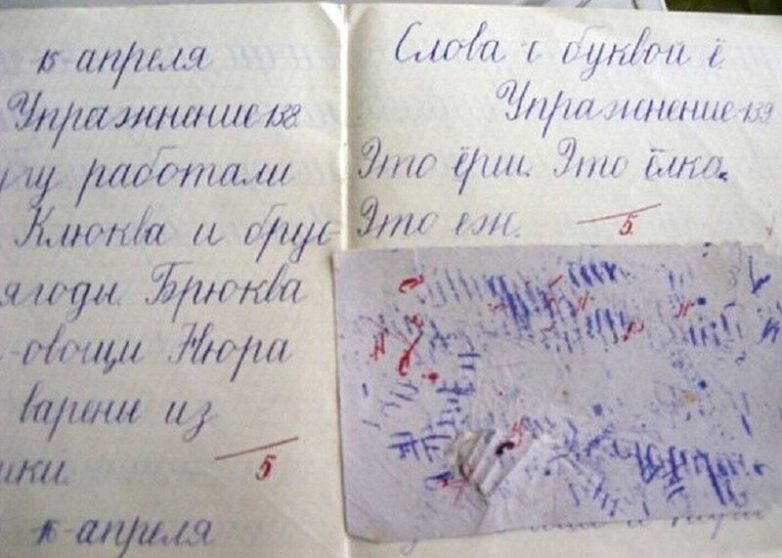 15 апреля
Упражнение 138.
работали
Клюква и брус-
ягоды. Брюква
-овощи Нюра
варенье из
5
апреля
Слова с буквой ё.
Упражнение 139
Это ёрш. Это ёлка.
Это еж.
5